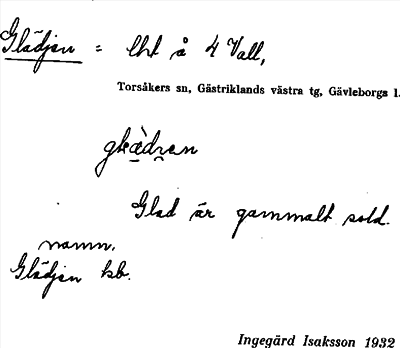 Glädjen = lht å 4 Vall,
Torsåkers sn, Gästriklands västra tg, Gävleborgs l.
Glad är gammalt sold.
namn.
Glädjen kb.
Ingegärd Isaksson 1932